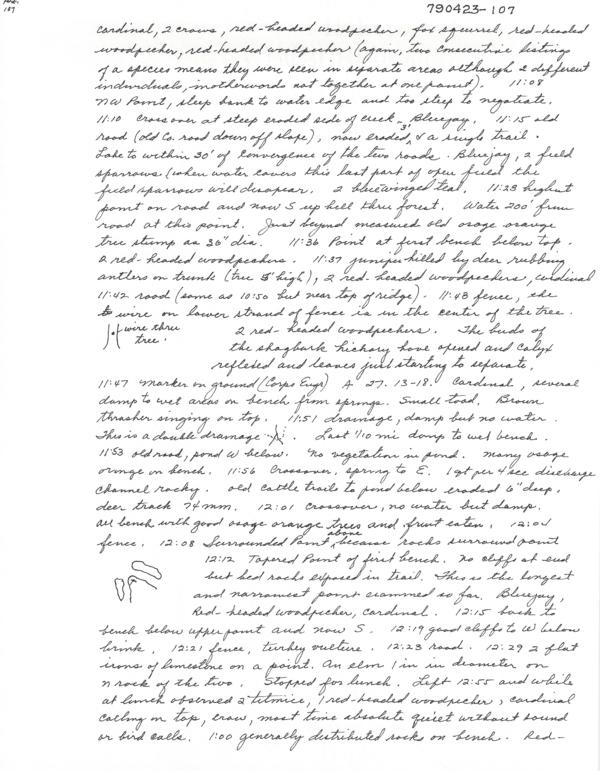 790423-107
cardinal, 2 crows, red-headed woodpecker, fox squirrel, red-headed
woodpecker, red-headed woodpecker (again, two consecutive listings
of a species means they were seen in separate areas although 2 different
individuals, in other words not together at one point). 11:08
NW Point, steep bank to water edge and too steep to negotiate.
11:10 Crossover at steep eroded side of creek. Bluejay. 11:15 old
road (old Co. road down off slope), now eroded 3' & a single trail.
Lake to within 30' of convergence of the two roads. Bluejay, 2 field
sparrows (when water covers this last part of open field the
field sparrows will disappear. 2 bluewinged teal. 11:23 highest
point on road and now S up hill thru forest. Water 200' from
road at this point. Just beyond measured old osage orange
tree stump as 36" dia. 11:36 Point at first bench below top.
2 red-headed woodpeckers. 11:37 juniper killed by deer rubbing
antlers on trunk (tree 5' high), 2 red-headed woodpeckers, cardinal
11:42 road (same as 10:50 but near top of ridge). 11:43 fence, the
wire on lower strand of fence is in the center of the tree.
wire thru
tree.
2 red-headed woodpeckers. The buds of
the shagbark hickory have opened and calyx
reflexed and leaves just starting to separate.
11:47 Marker on ground (Corps Engr) A 27. 13-18. Cardinal, several
damp to wet areas on bench from springs. Small toad. Brown
thrasher singing on top. 11:51 drainage, damp but no water.
This is a double drainage. Last 1/10 mi damp to wet bench.
11:53 old road, pond W below. No vegetation in pond. Many osage
orange on bench. 11:56 Crossover, spring to E. 1 qt per 4 sec discharge
channel rocky. Old cattle trails to pond below eroded 6" deep,
deer track 74 mm. 12:01 Crossover, no water but damp.
All bench with good osage orange trees and fruit eaten. 12:04
fence. 12:08 Surrounded Point, because rocks surround point
above
12:12 Tapered Point of first bench. No cliffs at end
but bed rocks exposed in trail. This is the longest
and narrowest point examined so far. Bluejay,
Red-headed woodpecker, cardinal. 12:15 back to
bench below upper point and now S. 12:19 good cliffs to W below
brink. 12:21 fence, turkey vulture. 12:23 road. 12:29 2 flat
irons of limestone on a point. An elm 1 in in diameter on
N rock of the two. Stopped for lunch. Left 12:55 and while
at lunch observed 2 titmice, 1 red-headed woodpecker, cardinal
calling on top, crow, most time absolute quiet without sound
or bird calls. 1:00 generally distributed rocks on bench. Red-